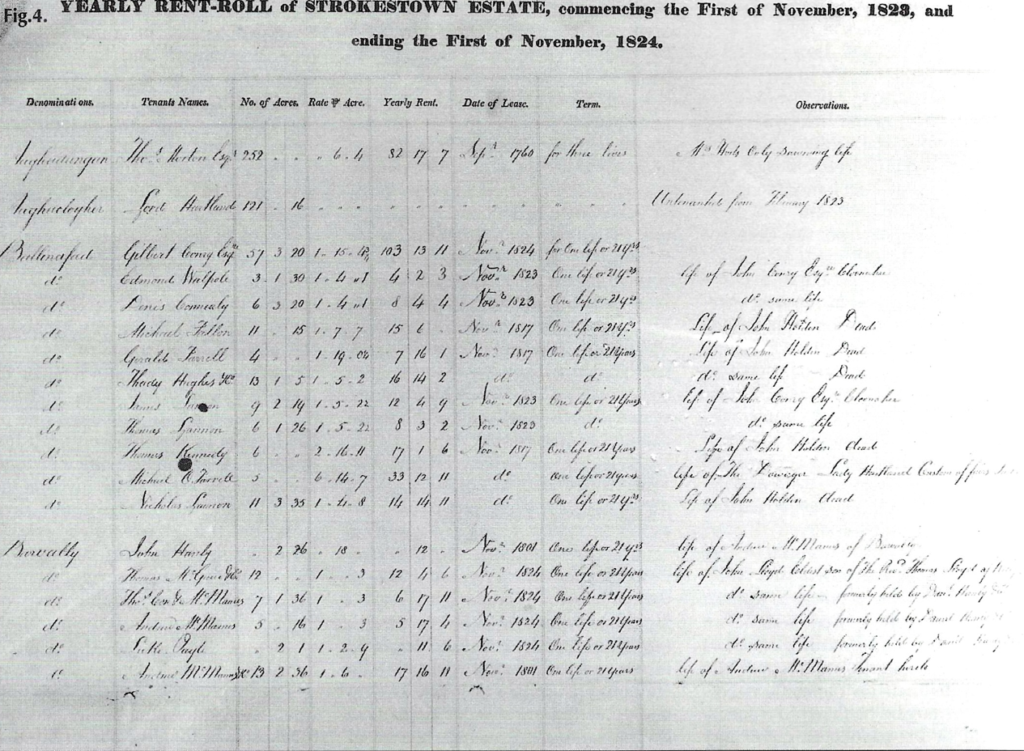 Fig.4. YEARLY RENT-ROLL of STROKESTOWN ESTATE, commencing the First of November, 1823, and
ending the First of November, 1824.
Denominations. Tenants Names. No. of Acres. Rate ⅌ Acre. Yearly Rent. Date of Lease. Term. Observations.
Thos. Horton Esqr. 252 . . . 6 . 4 82 17 7 Sept. 1760 for three lives Only Surviving life
Lord Hartland 121 . 16 Untenanted from February 1823
Gilbert Conry Esqr. 57 3 20 1 . 15 103 13 11 Novr. 1824 for One life or 21 yrs
do. Edmond Walpole 3 1 30 1 . 4 4 2 3 Novr. 1823 One life or 21 yrs life of John Conry Esqr.
do. Denis Connealy 6 3 20 1 . 4 8 4 4 Novr. 1823 One life or 21 yrs do. same life
do. Michael Fallon 11 . 15 1 . 7 . 7 15 6 . Novr. 1817 One life or 21 yrs Life of John Holden Dead
do. Gerald Farrell 4 . . 1 . 19 7 16 1 Novr. 1817 One life or 21 Years Life of John Holden Dead
do. Thady Hughes 13 1 5 1 . 5 . 2 16 14 2 do. do. do. same life Dead
do. James 9 2 19 1 . 5 12 4 9 Novr. 1823 One life or 21 Years life of John Conry Esqr.
do. Thomas Gannon 6 1 26 1 . 5 8 3 2 Novr. 1823 do. do. same life
do. Thomas Kennedy 6 . . 2 . 16 . 11 17 1 6 Novr. 1817 One life or 21 Years Life of John Holden dead
do. Michael O'Farrell 5 . . 6 . 14 . 7 33 12 11 do. One life or 21 years life of The Dowager Lady Hartland
do. Nicholas Gannon 11 3 35 14 14 11 do. One life or 21 yrs Life of John Holden dead
John Hanly . 2 26 . 18 . . 12 . Novr. 1801 One life or 21 yrs life of Andrew McManus of
do. Thomas 12 . . 1 . . 3 12 4 6 Novr. 1824 One life or 21 Years life of John Lloyd Eldest son of The Revd. Thomas Lloyd
do. Thos. McManus 7 1 36 1 . . 3 6 17 11 Novr. 1824 One life or 21 Years do. same life formerly held by
do. Andrew McManus 5 . 16 1 . . 3 5 17 4 Novr. 1824 One life or 21 Years do. same life formerly held by
do. . 2 1 1 . 2 . 9 . 11 6 Novr. 1824 One life or 21 Years do. same life formerly held by
do. Andrew McManus 13 2 36 1 . 6 . 17 16 11 Novr. 1801 One life or 21 Years life of Andrew McManus tenant